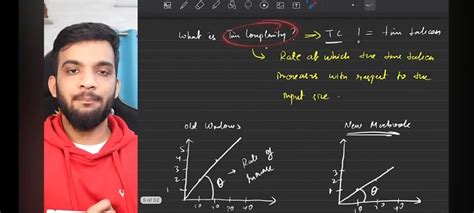 What is Time Complexity? ⇒ TC != time taken
↳ Rate at which the time taken
increases with respect to the
input size.
Old Windows
New Macbook
5
4
3
2
1
10 20 30 40
θ → Rate of
increase
3
2
1
10 20 30 40
θ
5 of 32